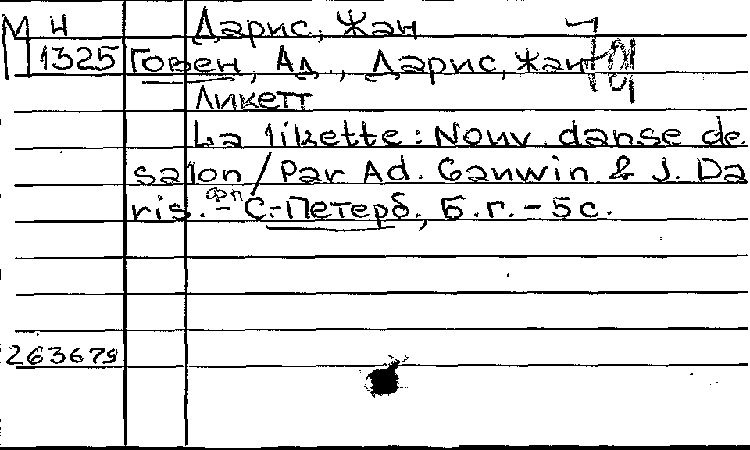 М Н Дарис, Жан
1325 Говен, Ад., Дарис, Жан
Ликетт
La likette: Nouv. danse de
salon / Par Ad. Gauwin & J. Da
ris. фп. - С.-Петерб., Б.г. - 5 с.
263679